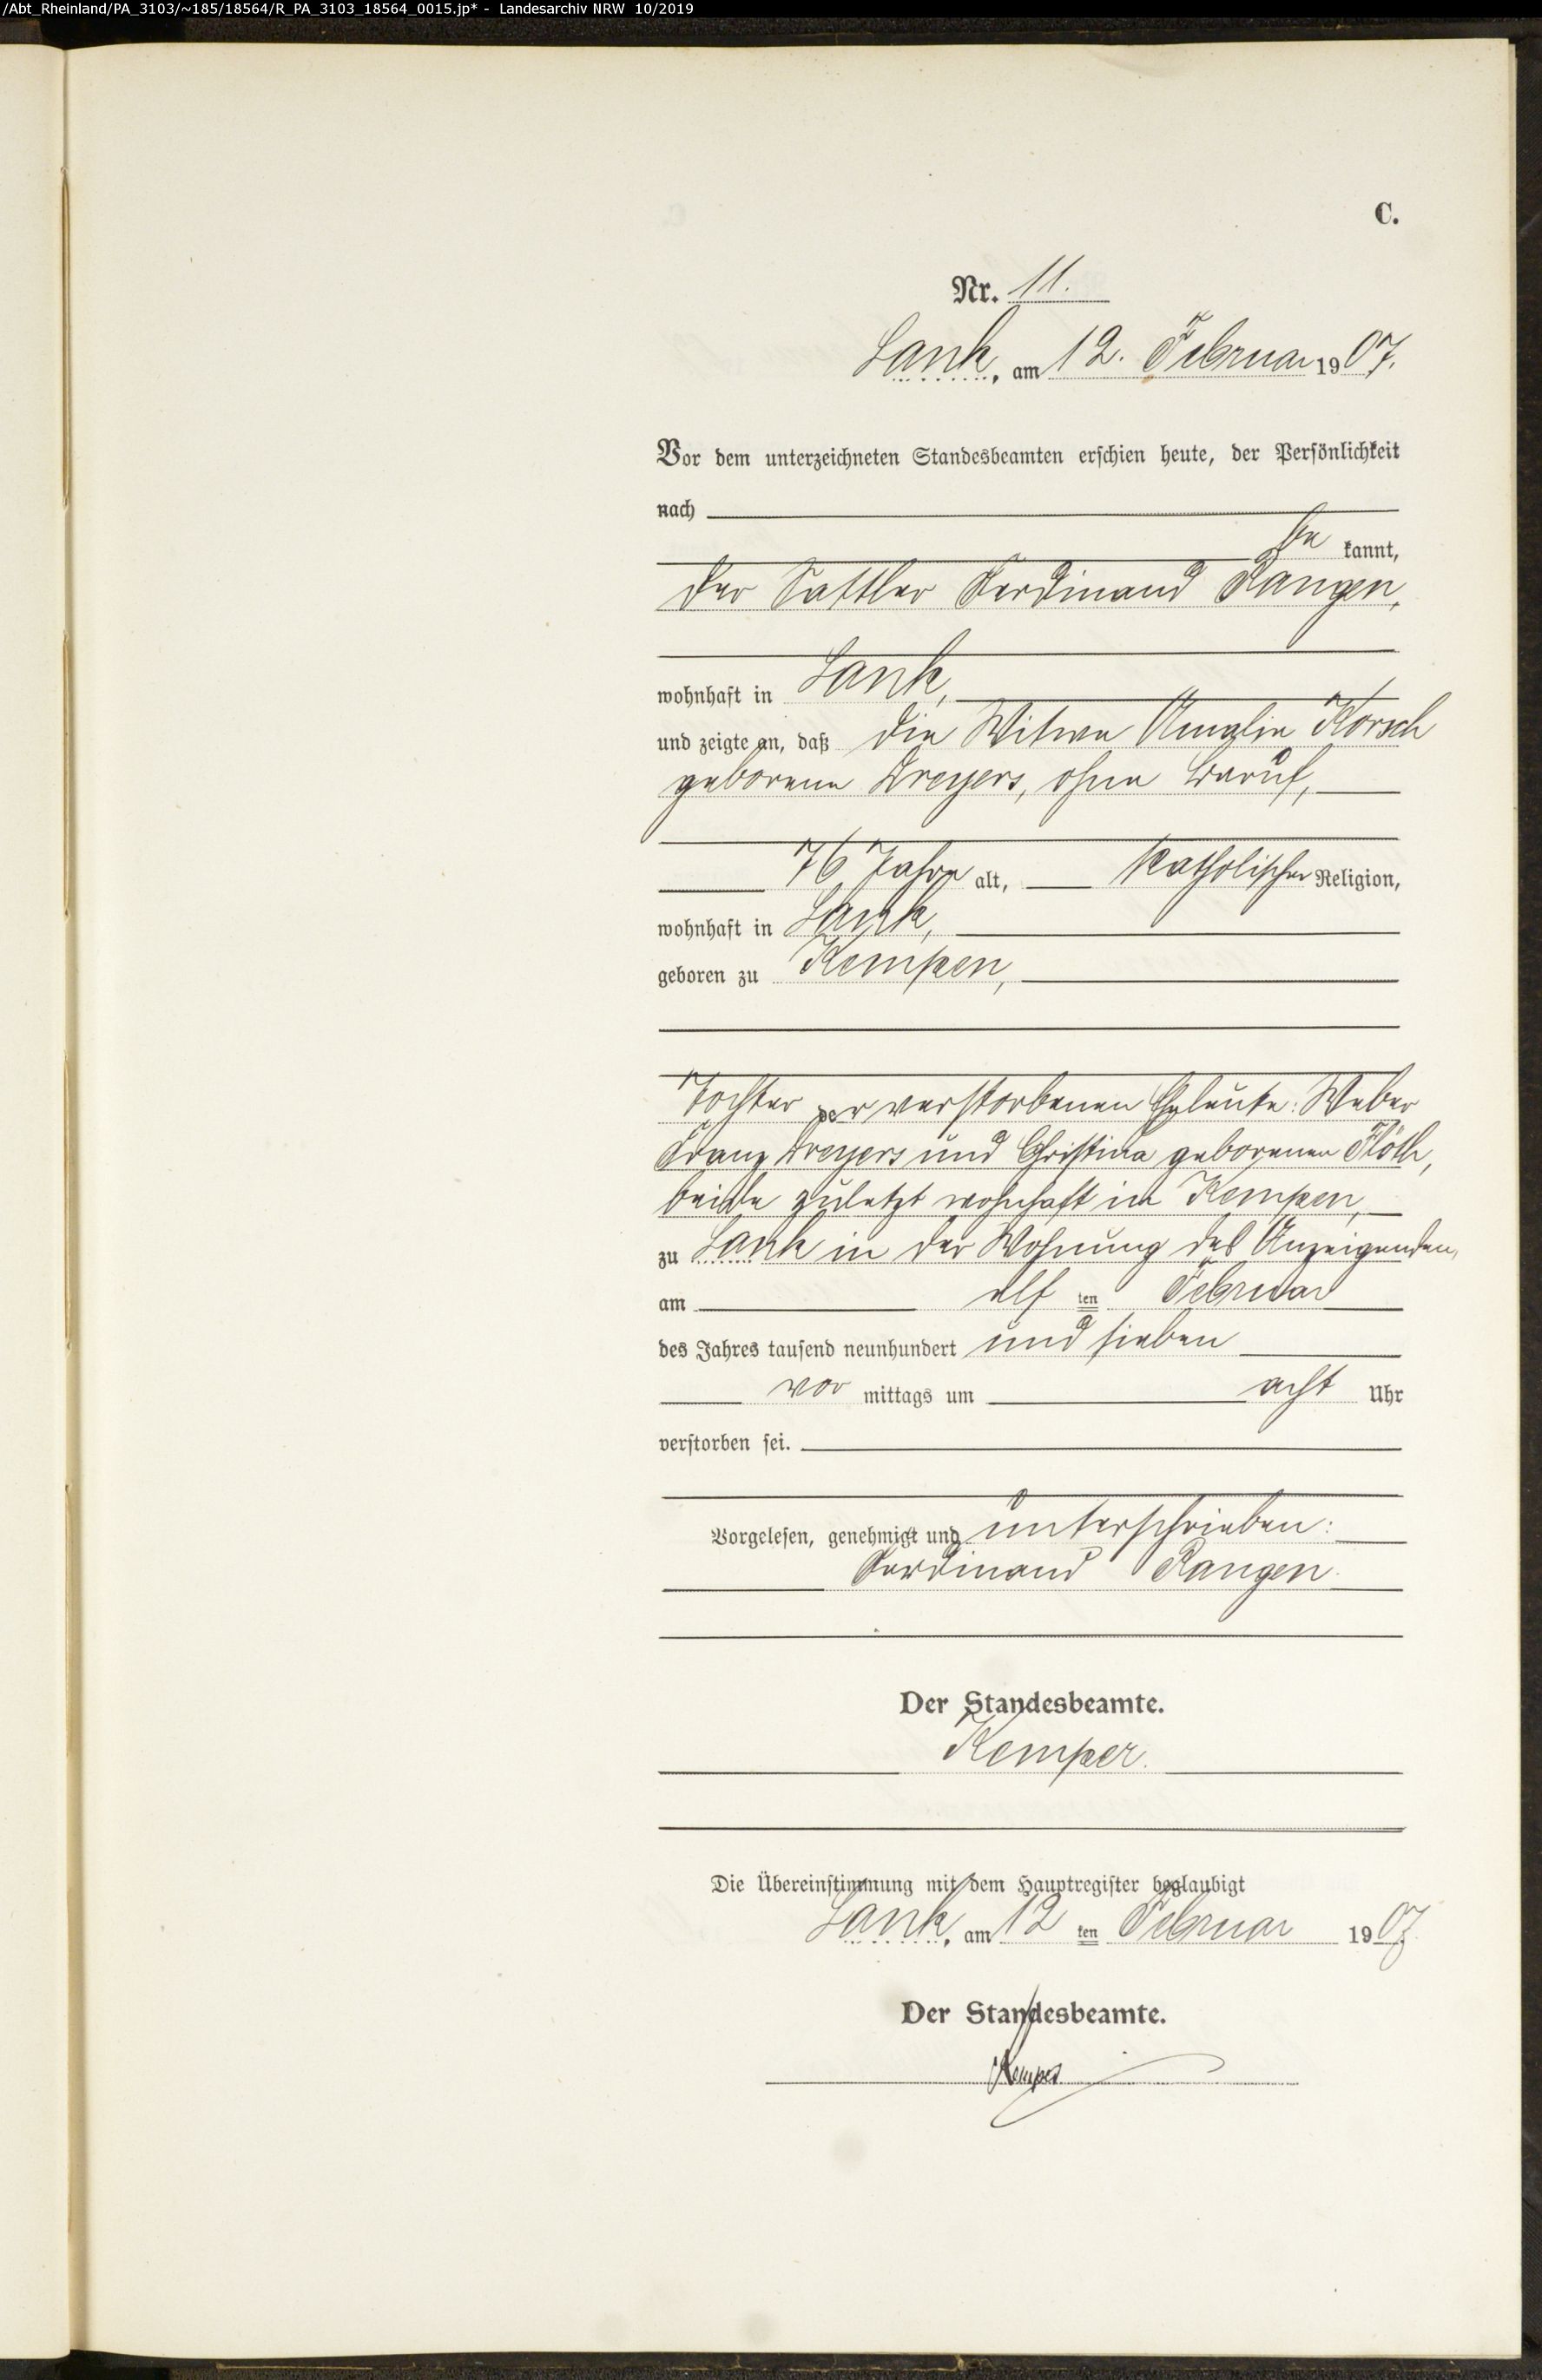 /Abt_Rheinland/PA_3103/~185/18564/R_PA_3103_18564_0015.jp* - Landesarchiv NRW 10/2019
C.
Nr. 11.
Lank, am 12. Februar 1907.
Vor dem unterzeichneten Standesbeamten erschien heute, der Persönlichkeit
nach
be kannt,
der Sattler Ferdinand Rangen,
wohnhaft in Lank,
und zeigte an, daß die Witwe Amalie Korsch
geborene Dreyers, ohne Beruf,
76 Jahre alt, katholischer Religion,
wohnhaft in Lank,
geboren zu Kempen,
Tochter der verstorbenen Eheleute: Weber
Franz Dreyers und Christina geborenen Flöth,
beide zuletzt wohnhaft in Kempen,
zu Lank in der Wohnung des Anzeigenden,
am elf ten Februar
des Jahres tausend neunhundert und sieben
vor mittags um acht Uhr
verstorben sei.
Vorgelesen, genehmigt und unterschrieben:
Ferdinand Rangen.
Der Standesbeamte.
Kemper.
Die Übereinstimmung mit dem Hauptregister beglaubigt
Lank, am 12 ten Februar 1907.
Der Standesbeamte.
Kemper